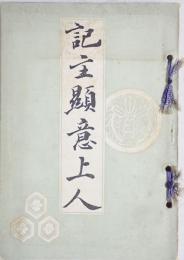 記主顯意上人